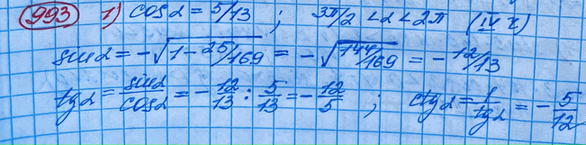 993 1) cosα = 5/13 ; 3π/2 < α < 2π (IV ч)
sinα = -√(1 - 25/169) = -√(144/169) = - 12/13
tgα = sinα/cosα = - 12/13 : 5/13 = - 12/5 ; ctgα = 1/tgα = - 5/12